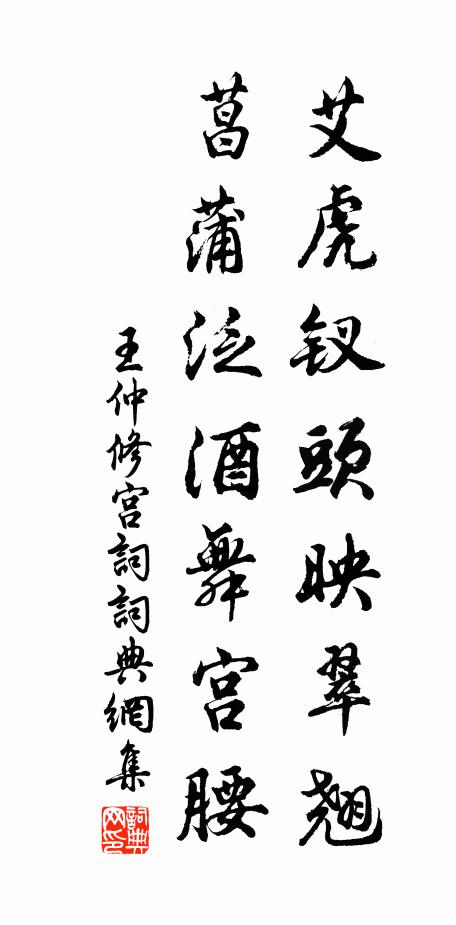 艾虎钗頭映翠翹
菖蒲泛酒舞宫腰
王仲修宫詞詞典網集
詞典网印